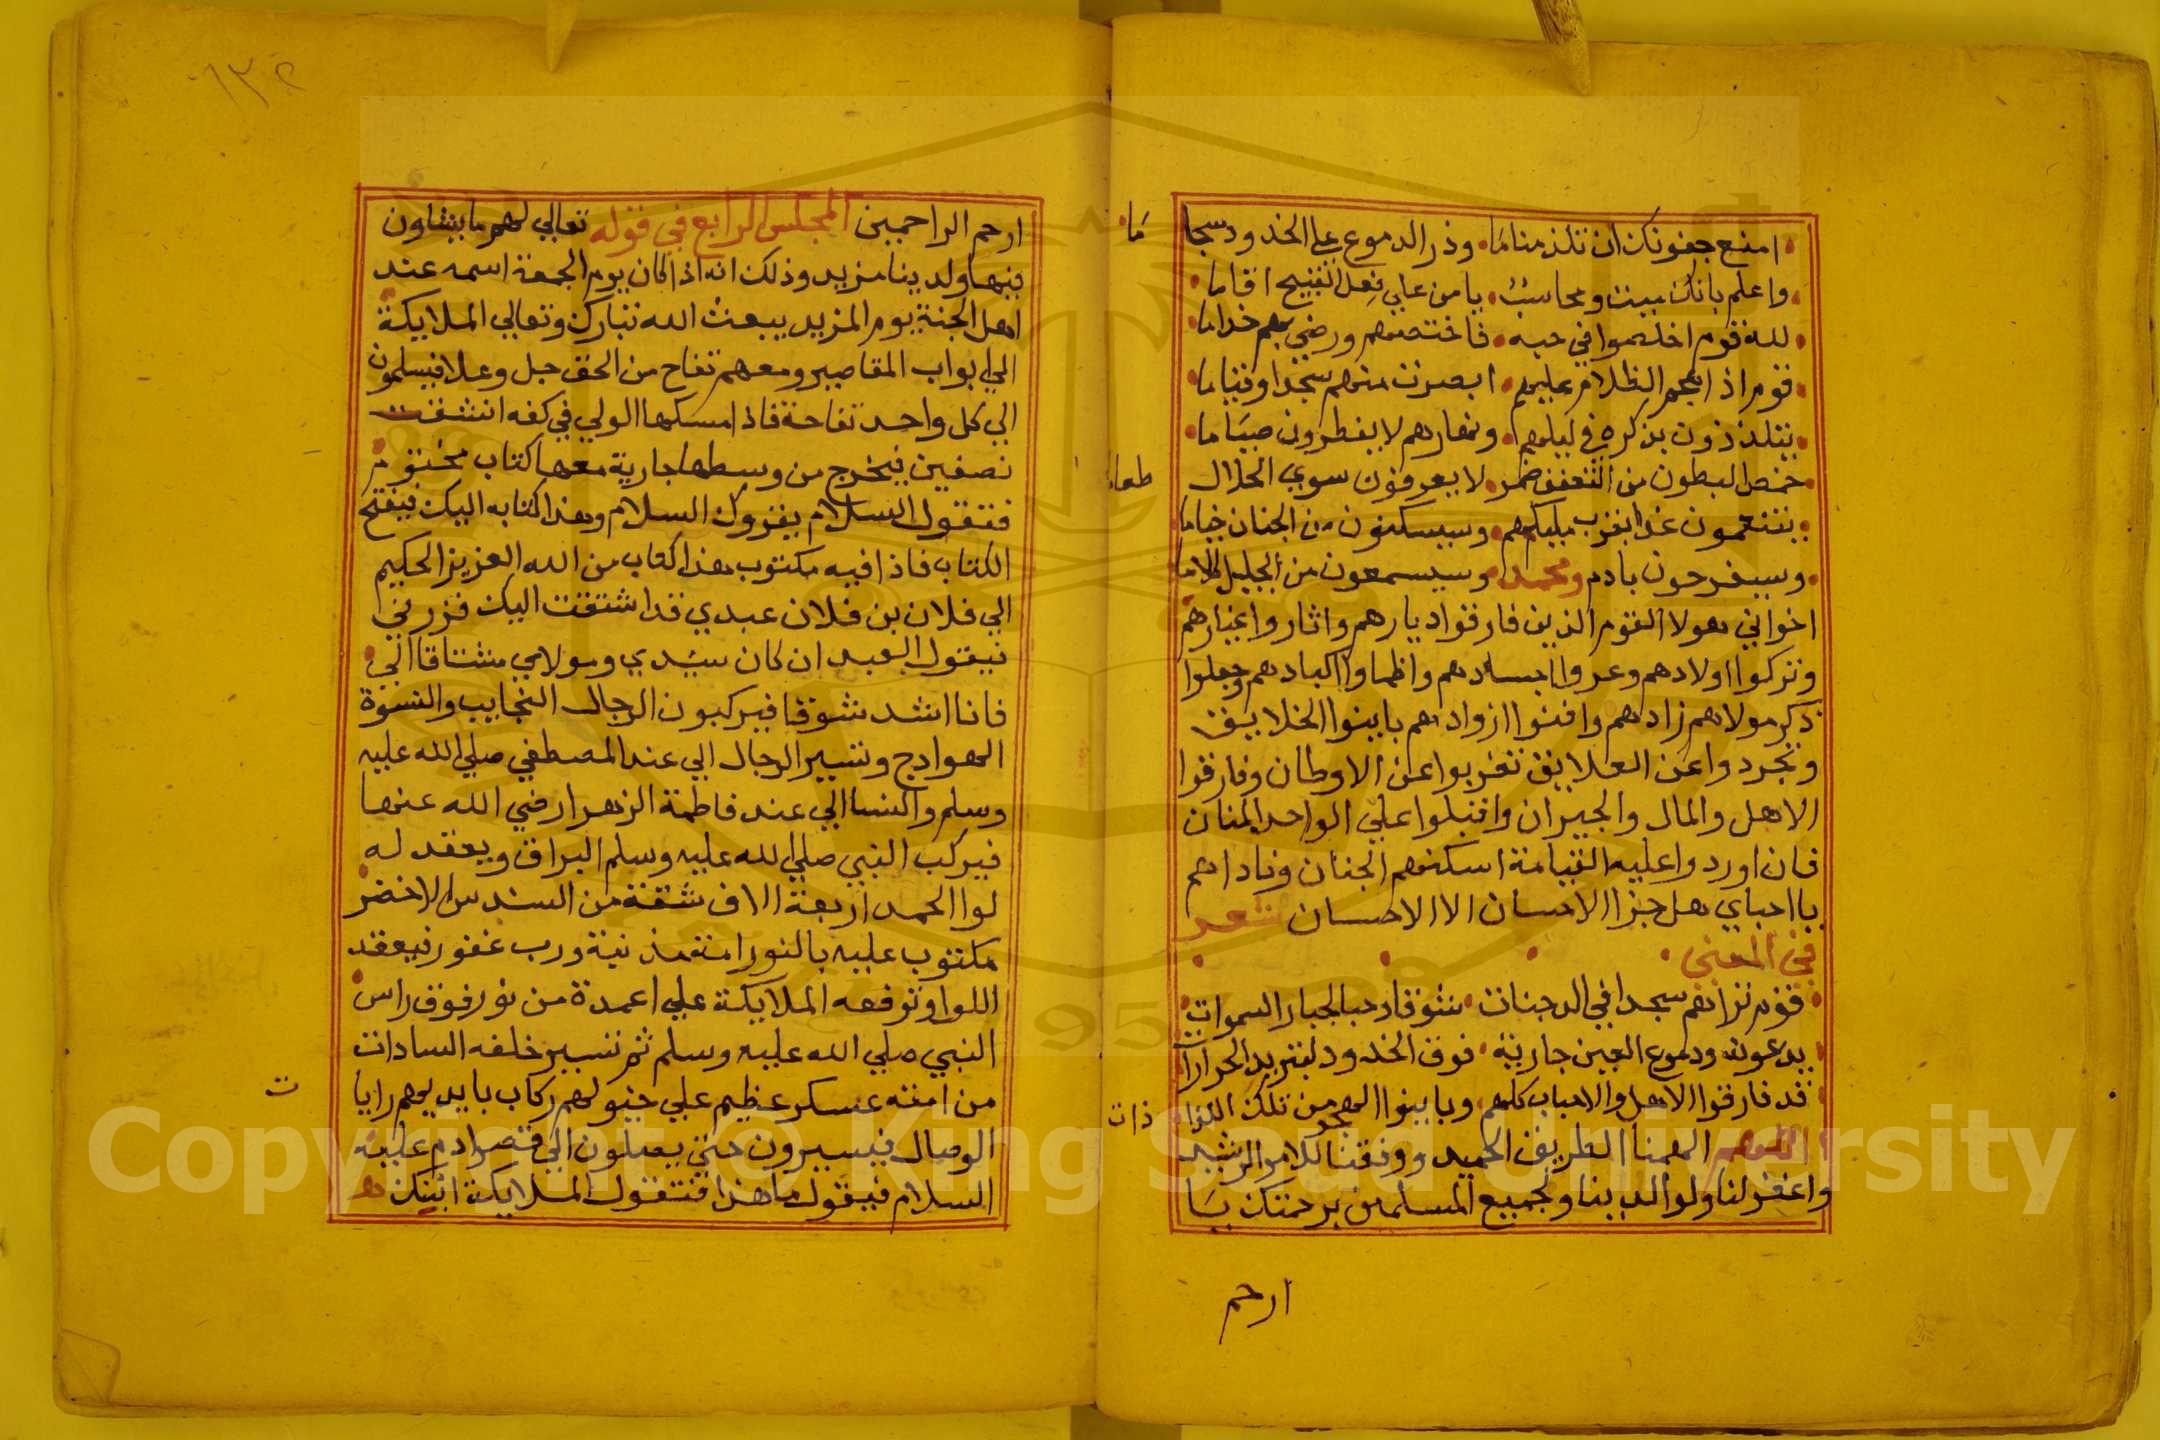 امنع جفونك ان تلذ مناما وذر الدموع علي الخدود سجا
ما
واعلم بانك ميت ومحاسب يا من علي فعل القبيح اقاما
لله قوم اخلصوا في حبه فاختصهم ورضي بهم خداما
قوم اذا هجم الظلام عليهم ابصرت منهم سجدا وقياما
يتلذذون بذكره في ليلهم ونهارهم لا يفطرون صياما
خمص البطون من التعفف ضمر لا يعرفون سوي الحلال
طعاما
يتنعمون غدا بقرب مليكهم وسيسكنون من الجنان خياما
وسيفرحون بادم ومحمد وسيسمعون من الجليل كلاما
اخواني هولا القوم الذين فارقوا ديارهم واثار واغيارهم
وتركوا اولادهم وعروا اجسادهم واظماوا اكبادهم وجعلوا
ذكر مولاهم زادهم وافنوا ازوادهم باينوا الخلايق
وتجردوا عن العلايق تغربوا عن الاوطان وفارقوا
الاهل والمال والجيران واقبلوا علي الواحد المنان
فان اوردوا عليه القيامة اسكنهم الجنان وناداهم
يا احباي هل جزا الاحسان الا الاحسان شعر
في المعني
قوم تراهم سجدا في الدجنات شوقا وحبا لجبار السموات
يدعونه ودموع العين جارية فوق الخدود لتبريد الحرارات
قد فارقوا الاهل والاحباب كلهم وباينوا الهجر من تلك اللذا
ذات
اللهم الهمنا الطريق الحميد ووفقنا للامر الرشيد
واغفر لنا ولوالدينا ولجميع المسلمين برحمتك يا
ارحم
١٣٢
ارحم الراحمين المجلس الرابع في قوله تعالي لهم ما يشاون
فيها ولدينا مزيد وذلك انه اذا كان يوم الجمعة اسمه عند
اهل الجنة يوم المزيد يبعث الله تبارك وتعالي الملايكة
الي ابواب المقاصير ومعهم تفاح من الحق جل وعلا فيسلمون
الي كل واحد تفاحة فاذا امسكها الولي في كفه انشقت
نصفين فيخرج من وسطها جارية معها كتاب مختوم
فتقول السلام يقروك السلام وهذا كتابه اليك فيفتح
الكتاب فاذا فيه مكتوب هذا كتاب من الله العزيز الحكيم
الي فلان بن فلان عبدي قد اشتقت اليك فزرني
فيقول العبد ان كان سيدي ومولاي مشتاقا الي
فانا اشد شوقا فيركبون الرجال النجايب والنسوة
الهوادج وتسير الرجال الي عند المصطفي صلي الله عليه
وسلم والنسا الي عند فاطمة الزهرا رضي الله عنها
فيركب النبي صلي الله عليه وسلم البراق ويعقد له
لوا الحمد اربعة الاف شقة من السندس الاخضر
مكتوب عليه بالنور امة مذنبة ورب غفور فيعقد
اللوا وترفعه الملايكة علي اعمدة من نور فوق راس
النبي صلي الله عليه وسلم ثم تسير خلفه السادات
من امته عسكر عظيم علي خيولهم ركاب بايديهم رايا
ت
الوصال فيسيرون حتي يصلون الي قصر ادم عليه
السلام فيقول ما هذا فتقول الملايكة ابنك
Copyright © King Saud University